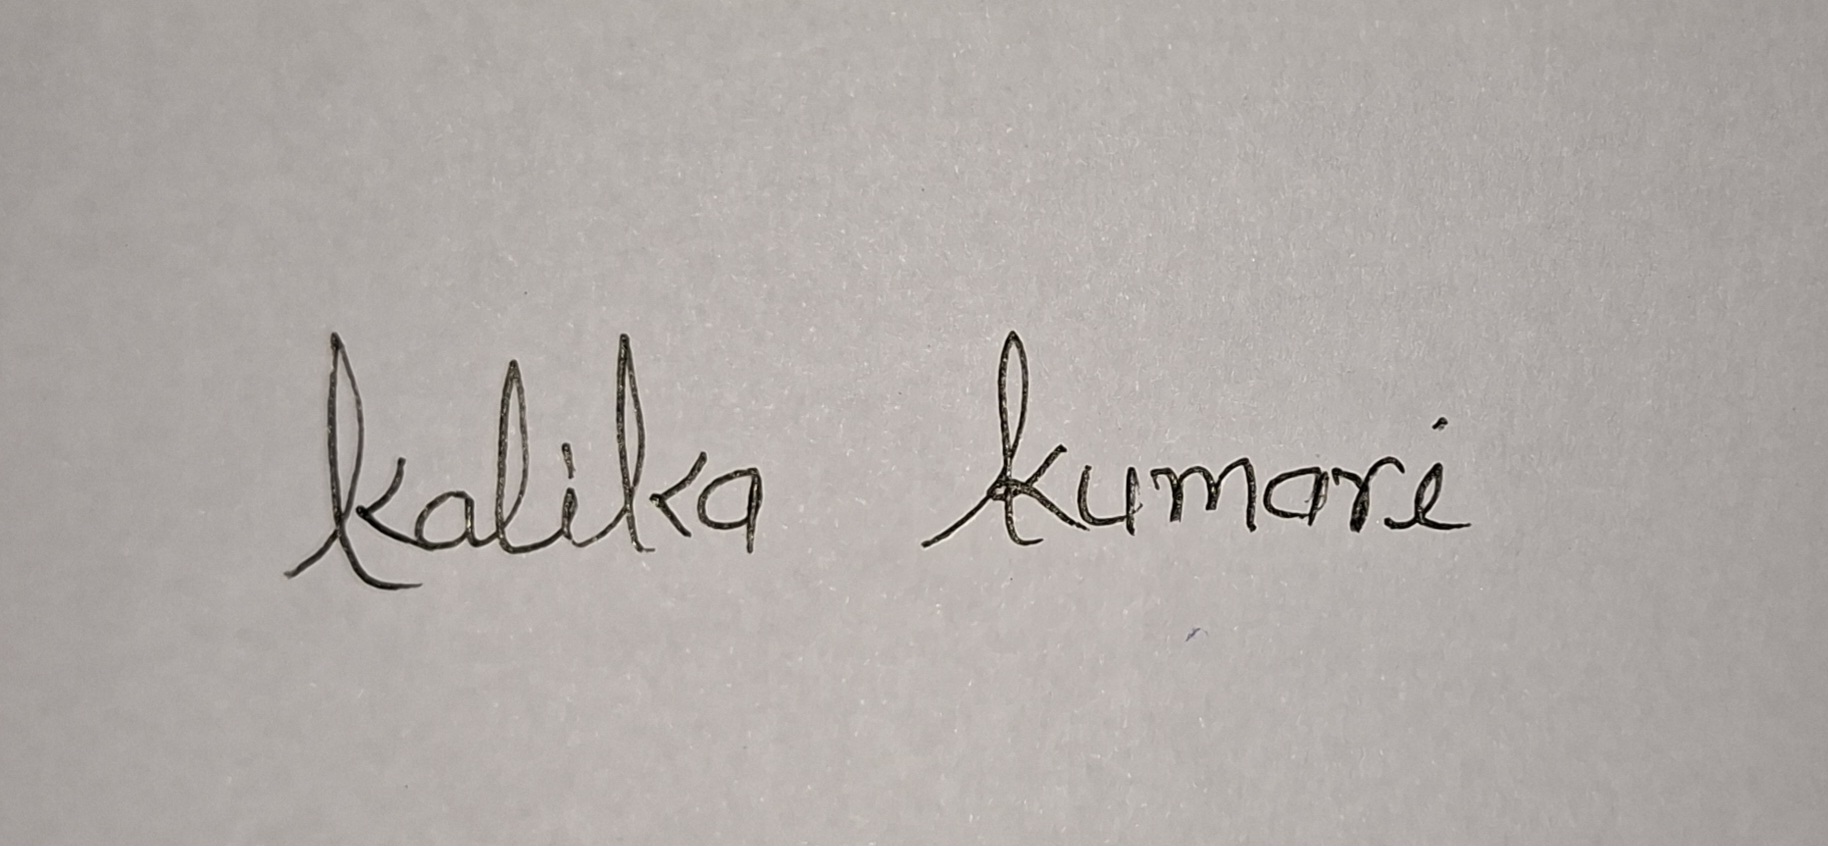 kalika kumari